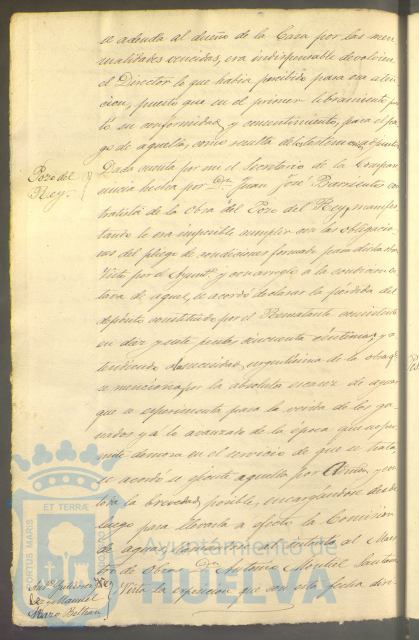 se adeuda al dueño de la Casa por las men
sualidades vencidas, era indispensable devolviera
el Director lo que habia percibido para esa aten
cion, puesto que en el primer libramiento
lo su conformidad y consentimiento, para el pa
go de aquella, como resulta de los
Pozo del Rey
Dada cuenta por mi el Secretario de la Compare
cencia hecha por Dn. Juan José Barrientos con
tratista de la Obra del Pozo del Rey, manifes
tando le era imposible cumplir con las obligacio
nes del pliego de condiciones formado para dicha obra
Visto por el Aynto. y con arreglo a la
de aquel, se acordó declarar la pérdida del
depósito constituido por el Rematante consistente
en diez y siete pesetas cincuenta céntimos, y a
tendiendo la necesidad urgentisima de la obra q
se menciona, por la absoluta escasez de aguas
que se esperimenta para la venida de los ga
nados y a lo avanzado de la época que no per
mite demora en el servicio de que se trata,
se acordó se efectue aquella por Admon. y con
toda la brevedad posible, encargandose desde
luego para llevarla a efecto, la Comision
de aguas, asociada al intento al Maes
tro de Obras Dn. Antonio Montiel Santana
Visto la esposicion que con esta fecha diri
PORTUS MARIS ET TERRÆ CUSTODIA
Ayuntamiento de
HUELVA